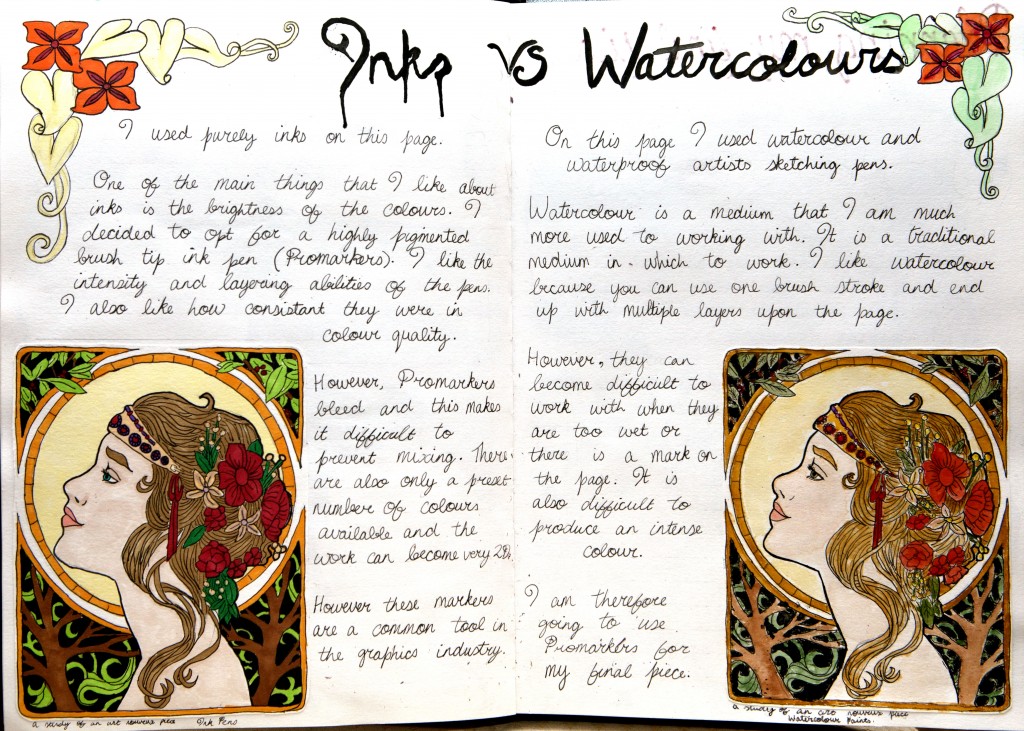 Inks vs Watercolours
I used purely inks on this page.
One of the main things that I like about
inks is the brightness of the colours. I
decided to opt for a highly pigmented
brush tip ink pen (Promarkers). I like the
intensity and layering abilities of the pens.
I also like how consistant they were in
colour quality.
However, Promarkers
bleed and this makes
it difficult to
prevent mixing. There
are also only a preset
number of colours
available and the
work can become very 2D.
However these markers
are a common tool in
the graphics industry.
a study of an art nouveau piece Ink Pens
On this page I used watercolour and
waterproof artists sketching pens.
Watercolour is a medium that I am much
more used to working with. It is a traditional
medium in which to work. I like watercolour
because you can use one brush stroke and end
up with multiple layers upon the page.
However, they can
become difficult to
work with when they
are too wet or
there is a mark on
the page. It is
also difficult to
produce an intense
colour.
I am therefore
going to use
Promarkers for
my final piece.
a study of an nouveau piece
Watercolour Paints.